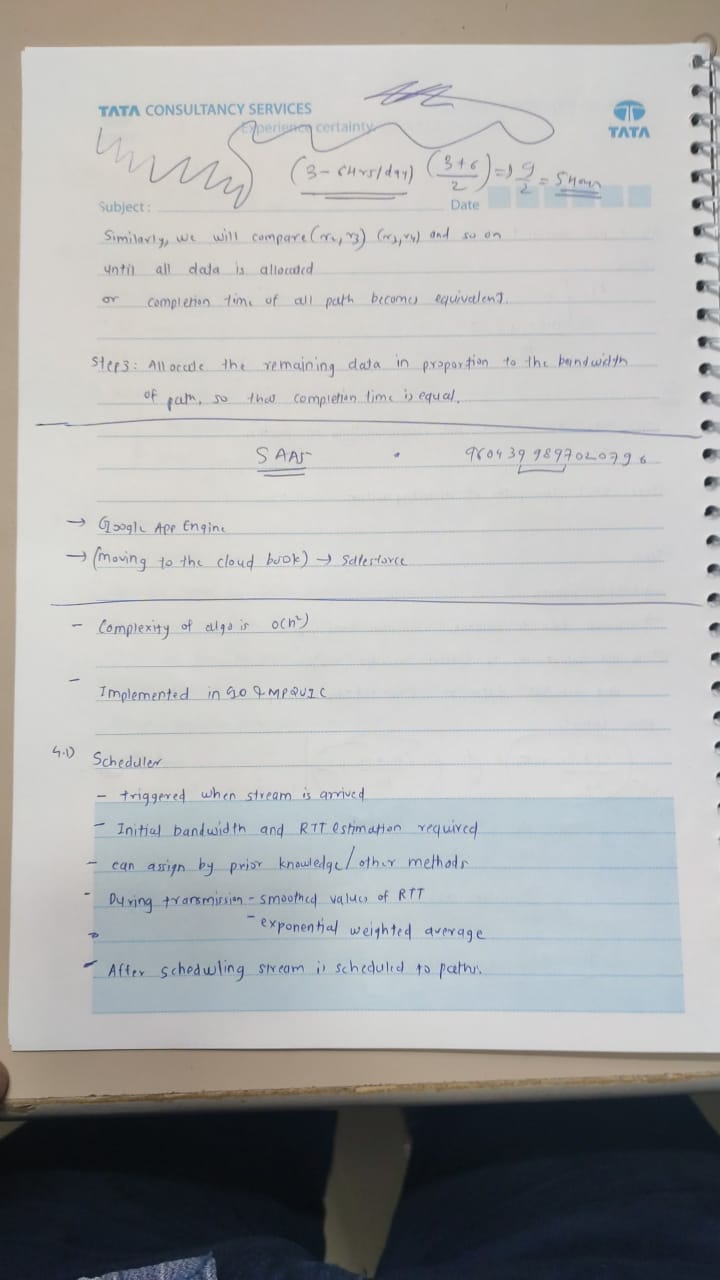 TATA CONSULTANCY SERVICES
Experience certainty.
TATA
(3-6hrs/day) (3+6/2) => 9/2 = 5 hours
Subject :
Date
Similarly, we will compare (r2, r3) (r3, r4) and so on
until all data is allocated
or completion time of all path becomes equivalent.
Step 3: Allocate the remaining data in proportion to the bandwidth
of path, so that completion time is equal.
SAAS
→ Google App Engine
→ (moving to the cloud book) → Salesforce
- Complexity of algo is O(n²)
- Implemented in GO & MPQUIC
4.1) Scheduler
- triggered when stream is arrived
- Initial bandwidth and RTT estimation required
- can assign by prior knowledge / other methods
- During transmission - smoothed values of RTT
- exponential weighted average
- After scheduling stream is scheduled to paths.